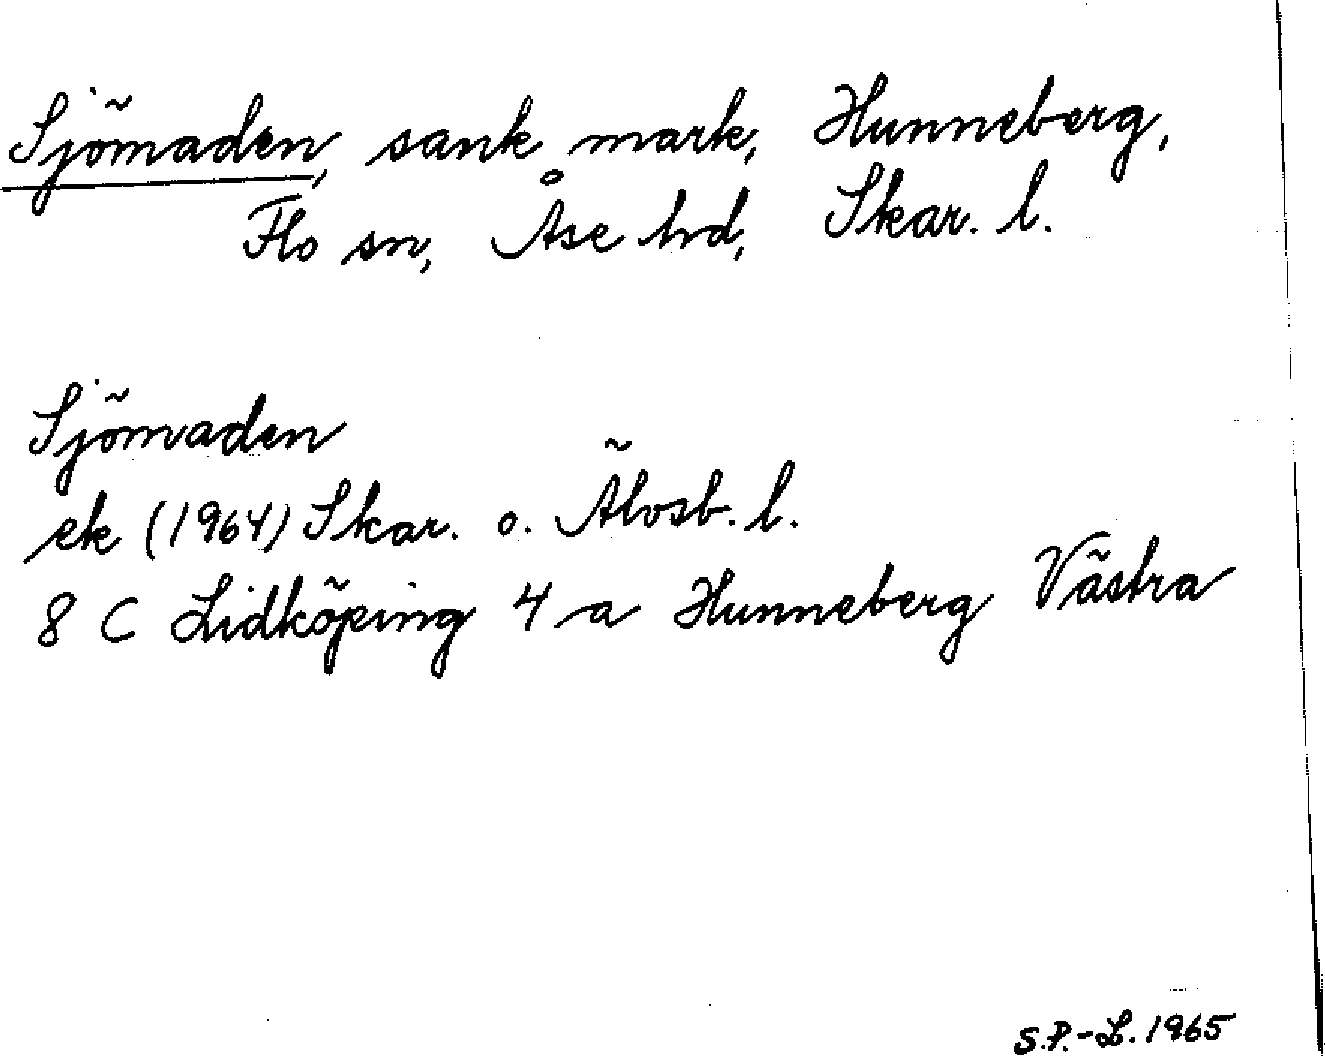 Sjömaden, sank mark, Hunneberg,
Flo sn, Åse hd, Skar. l.
Sjömaden
ek (1964) Skar. o. Älvsb. l.
8 C Lidköping 4 a Hunneberg Västra
S.P.-L. 1965